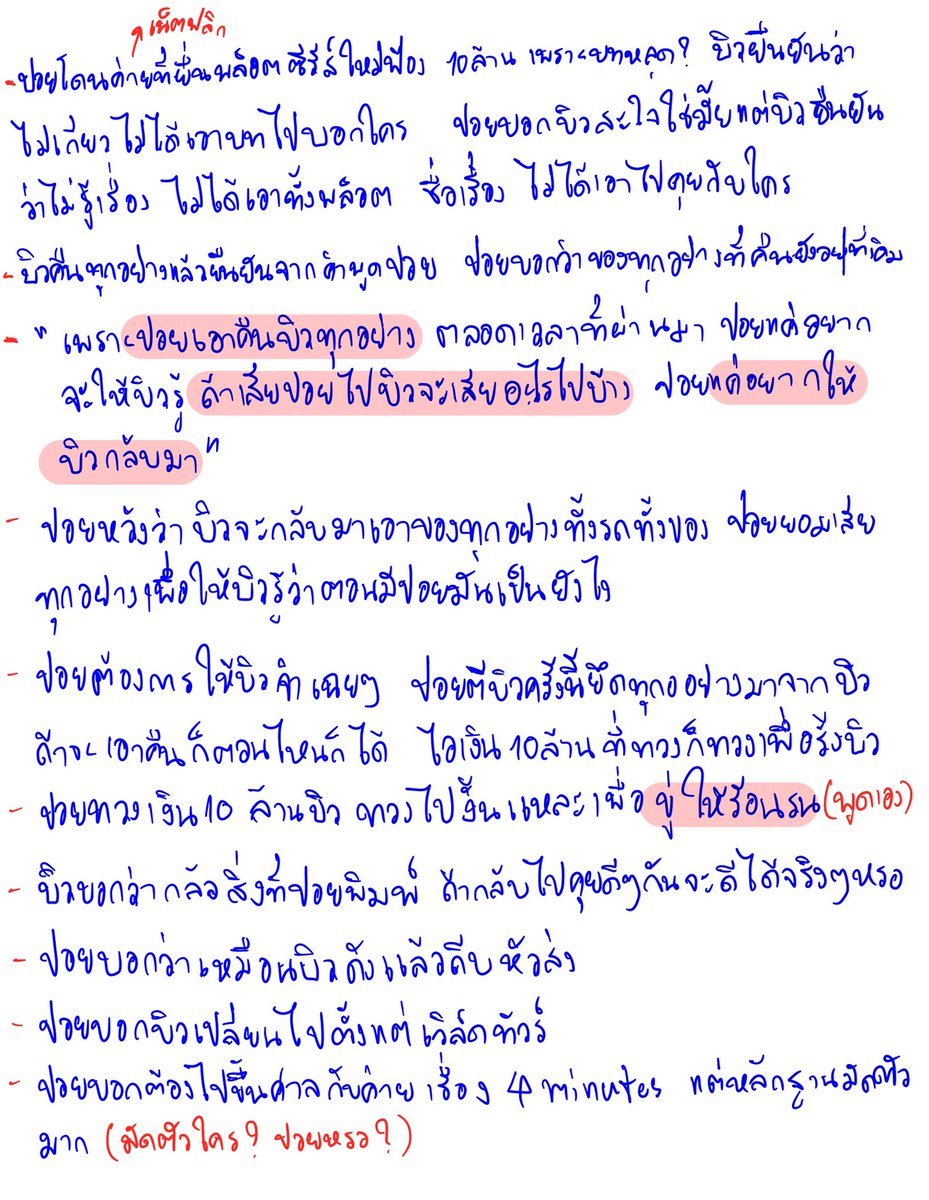 เน็ตฟลิก
- ปอยโดนค่ายที่ยื่นพล็อตซีรีส์ใหม่ฟ้อง 10 ล้าน เพราะบทหลุด? บิวยืนยันว่า
ไม่เกี่ยว ไม่ได้เอาบทไปบอกใคร ปอยบอกบิวสะใจใช่มั้ยแต่บิวยืนยัน
ว่าไม่รู้เรื่อง ไม่ได้เอาทั้งพล็อต ชื่อเรื่อง ไม่ได้เอาไปคุยกับใคร
- บิวคืนทุกอย่างแล้วยืนยันจากคำพูดปอย ปอยบอกว่าของทุกอย่างที่คืนยังอยู่ที่เดิม
- " เพราะปอยเอาคืนบิวทุกอย่าง ตลอดเวลาที่ผ่านมา ปอยแค่อยาก
จะให้บิวรู้ ถ้าเสียปอยไปบิวจะเสียอะไรไปบ้าง ปอยแค่อยากให้
บิวกลับมา "
- ปอยหวังว่า บิวจะกลับมาเอาของทุกอย่างทั้งรถทั้งของ ปอยยอมเสีย
ทุกอย่างเพื่อให้บิวรู้ว่าตอนมีปอยมันเป็นยังไง
- ปอยต้องการให้บิวจำเฉยๆ ปอยตีบิวครั้งนี้ยึดทุกอย่างมาจากบิว
ถ้าจะเอาคืนก็ตอนไหนก็ได้ ไอเงิน 10 ล้าน ที่ทวงก็ทวงเพื่อรั้งบิว
- ปอยทวงเงิน 10 ล้านบิว ทวงไปงั้นแหละเพื่อ ขู่ ให้ร้อนรน (พูดเอง)
- บิวบอกว่ากลัวสิ่งที่ปอยพิมพ์ ถ้ากลับไปคุยดีๆกันจะดีได้จริงๆหรอ
- ปอยบอกว่าเหมือนบิวดังแล้วถีบหัวส่ง
- ปอยบอกบิวเปลี่ยนไปตั้งแต่เวิล์ดทัวร์
- ปอยบอกต้องไปขึ้นศาลกับค่าย เรื่อง 4 minutes แต่หลักฐานมัดตัว
มาก (มัดตัวใคร? ปอยหรอ?)